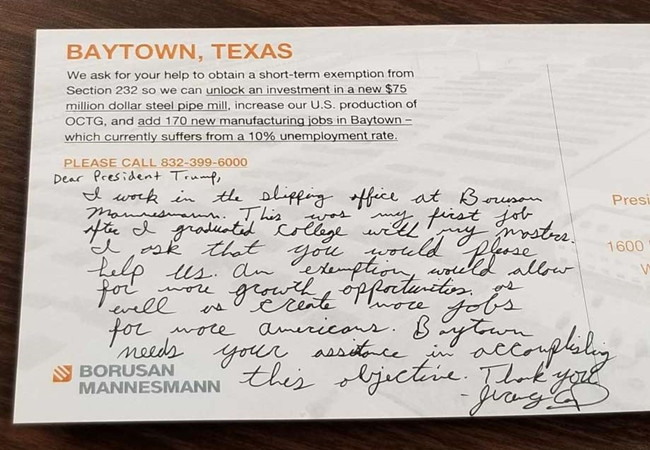 BAYTOWN, TEXAS
We ask for your help to obtain a short-term exemption from
Section 232 so we can unlock an investment in a new $75
million dollar steel pipe mill, increase our U.S. production of
OCTG, and add 170 new manufacturing jobs in Baytown –
which currently suffers from a 10% unemployment rate.
PLEASE CALL 832-399-6000
Dear President Trump,
I work in the shipping office at Borusan
Mannesmann. This was my first job
after I graduated College with my masters.
I ask that you would please
help us. An exemption would allow
for more growth opportunities, as
well as create more jobs
for more americans. Baytown
needs your assistance in accomplishing
this objective. Thank you
BORUSAN
MANNESMANN
Presi
1600
W